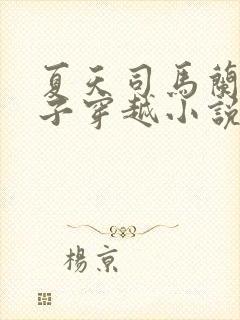 夏天司馬蘭
子穿越小說
楊京